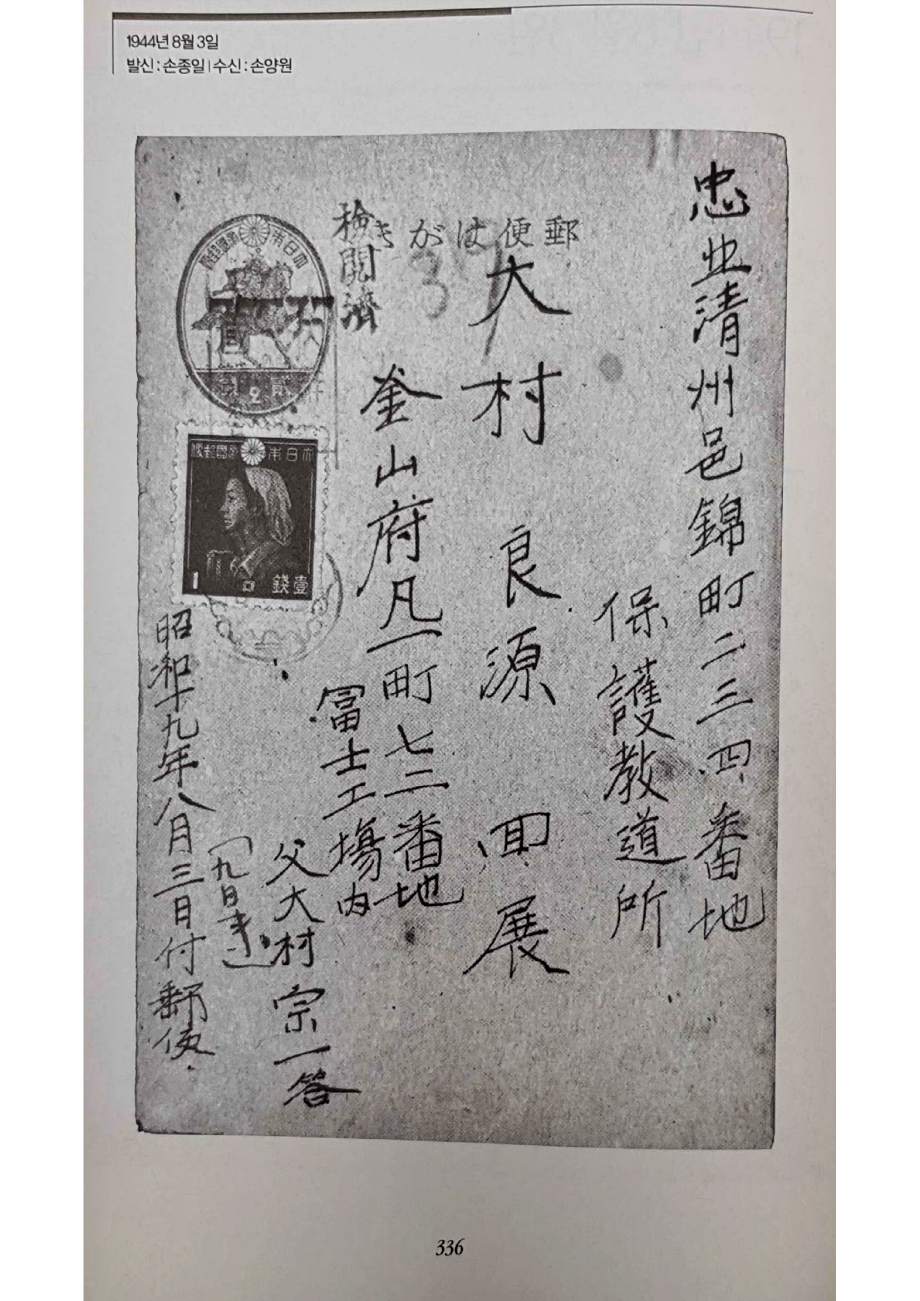 1944년 8월 3일
발신 : 손종일 | 수신 : 손양원
忠北清州邑錦町二三四番地
保護教道所
大村良源 回展
釜山府凡一町七二番地
冨士工場内
父大村宗一答
昭和十九年八月三日付郵便
郵便はがき
検閲濟
39
大日本帝國郵便
2
大日本帝國郵便
1 壹錢
336